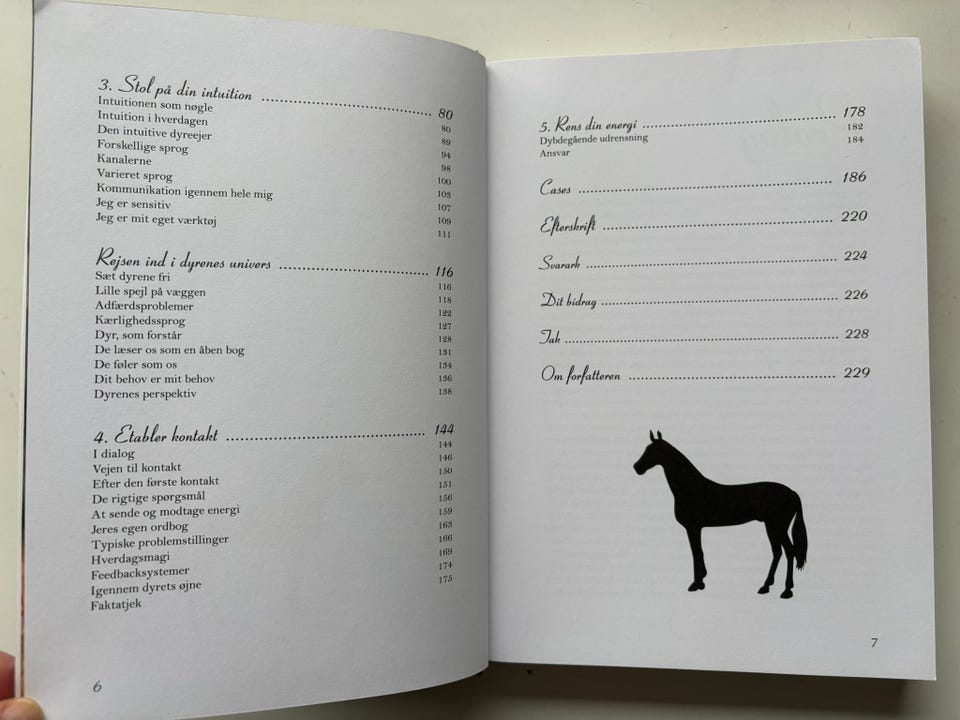 3. Stol på din intuition ........ 80
Intuitionen som nøgle 80
Intuition i hverdagen 89
Den intuitive dyreejer 94
Forskellige sprog 98
Kanalerne 100
Varieret sprog 103
Kommunikation igennem hele mig 107
Jeg er sensitiv 109
Jeg er mit eget værktøj 111
Rejsen ind i dyrenes univers ........ 116
Sæt dyrene fri 116
Lille spejl på væggen 118
Adfærdsproblemer 122
Kærlighedssprog 127
Dyr, som forstår 128
De læser os som en åben bog 131
De føler som os 134
Dit behov er mit behov 136
Dyrenes perspektiv 138
4. Etabler kontakt ........ 144
I dialog 144
Vejen til kontakt 146
Efter den første kontakt 150
De rigtige spørgsmål 151
At sende og modtage energi 156
Jeres egen ordbog 159
Typiske problemstillinger 163
Hverdagsmagi 166
Feedbacksystemer 169
Igennem dyrets øjne 174
Faktatjek 175
6
5. Rens din energi ........ 178
Dybdegående udrensning 182
Ansvar 184
Cases ........ 186
Efterskrift ........ 220
Svarark ........ 224
Dit bidrag ........ 226
Tak ........ 228
Om forfatteren ........ 229
7